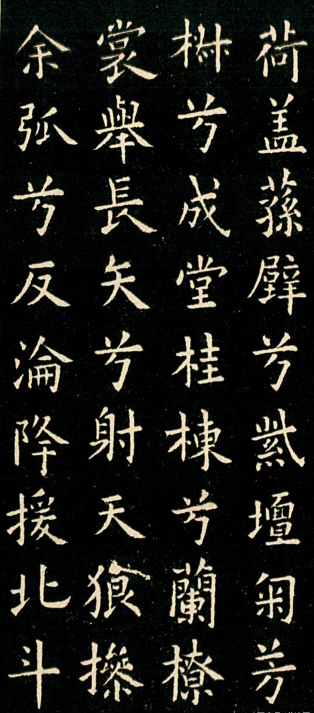 荷盖蓀壁兮紫壇匊芳
椒兮成堂桂棟兮蘭橑
裳舉長矢兮射天狼操
余弧兮反淪降援北斗